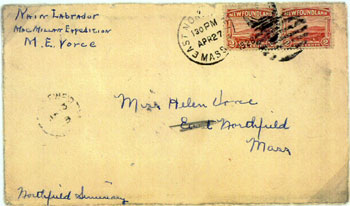 Nain Labrador
MacMillan Expedition
M. E. Vorce
EAST NOR
130 PM
APR 27
MASS
NEWFOUNDLAND
NEWFOUNDLAND
Miss Helen Vorce
East Northfield
Mass
Northfield Seminary